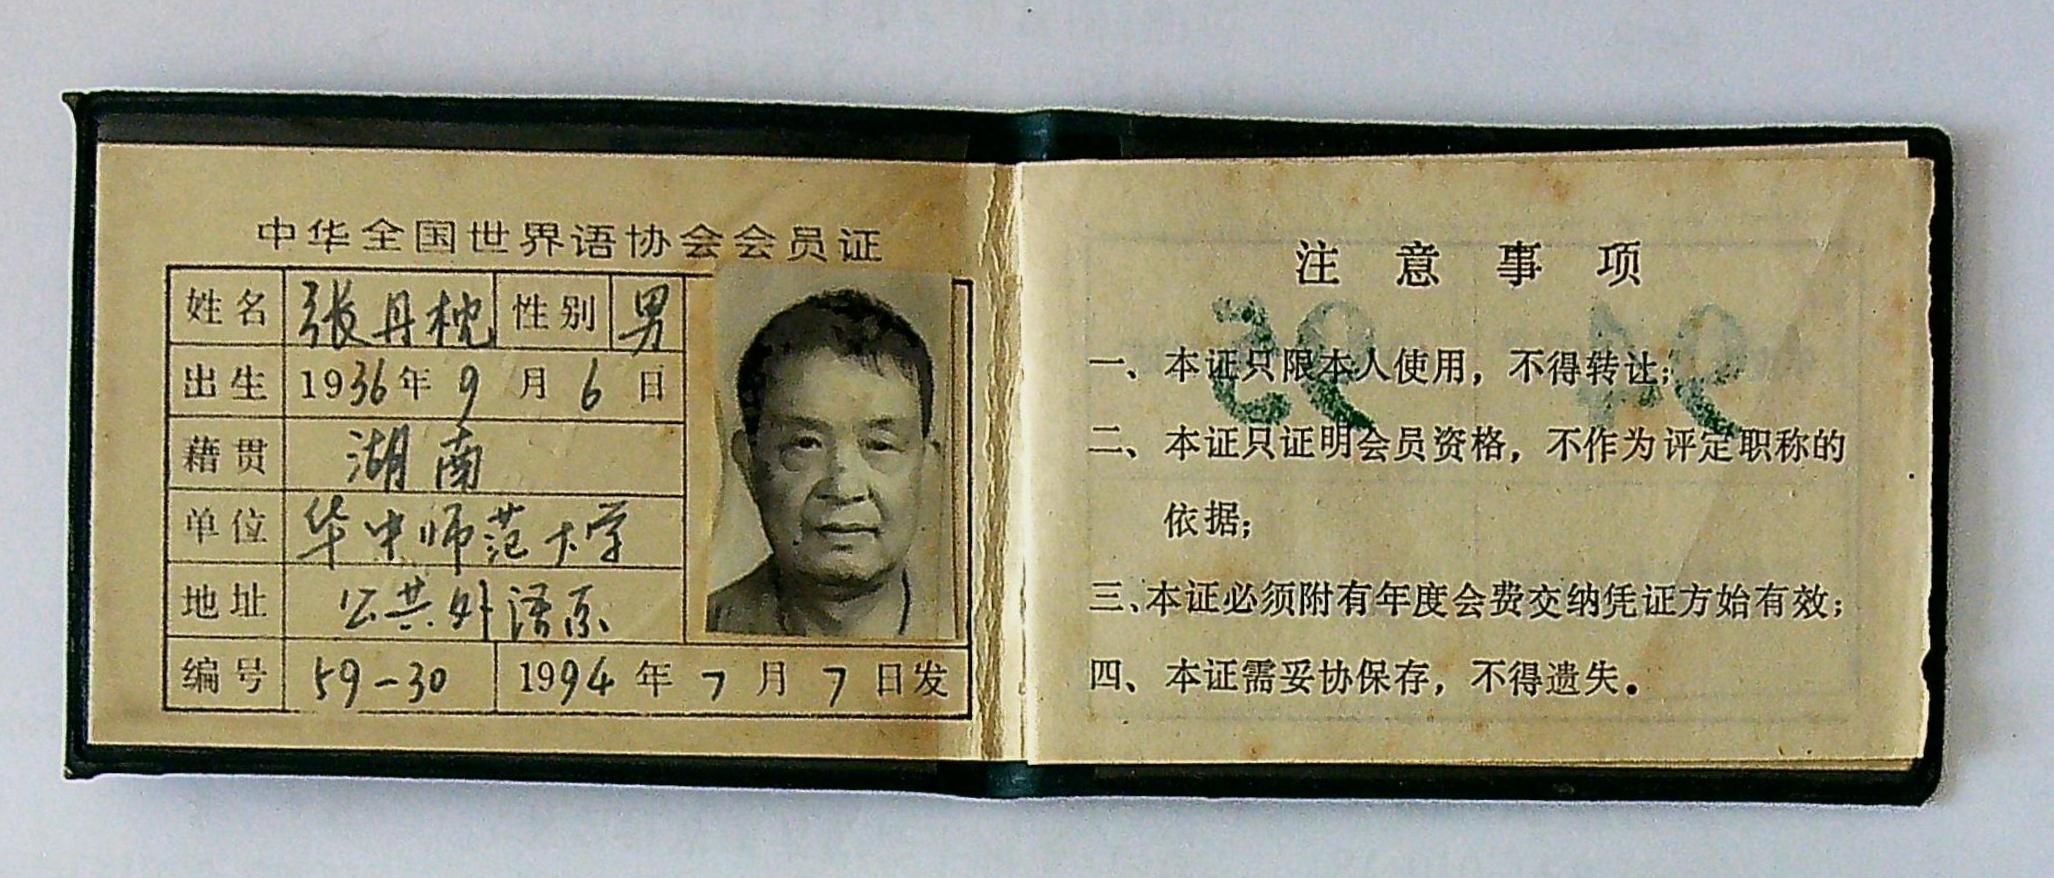 中华全国世界语协会会员证
姓名 张丹忱 性别 男
出生 1936年9月6日
藉贯 湖南
单位 华中师范大学
地址 公共外语系
编号 59-30 1994年7月7日发
注意事项
一、本证只限本人使用，不得转让；
二、本证只证明会员资格，不作为评定职称的
依据；
三、本证必须附有年度会费交纳凭证方始有效；
四、本证需妥协保存，不得遗失。
94 95